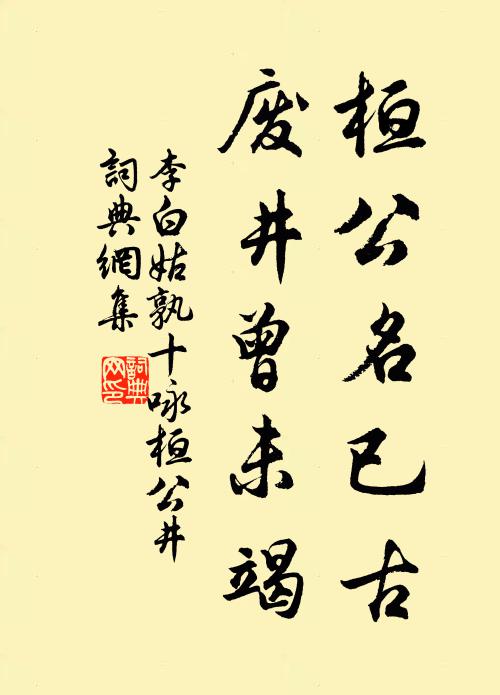 桓公名已古
废井曾未竭
李白姑孰十咏桓公井
詞典網集
詞典網印